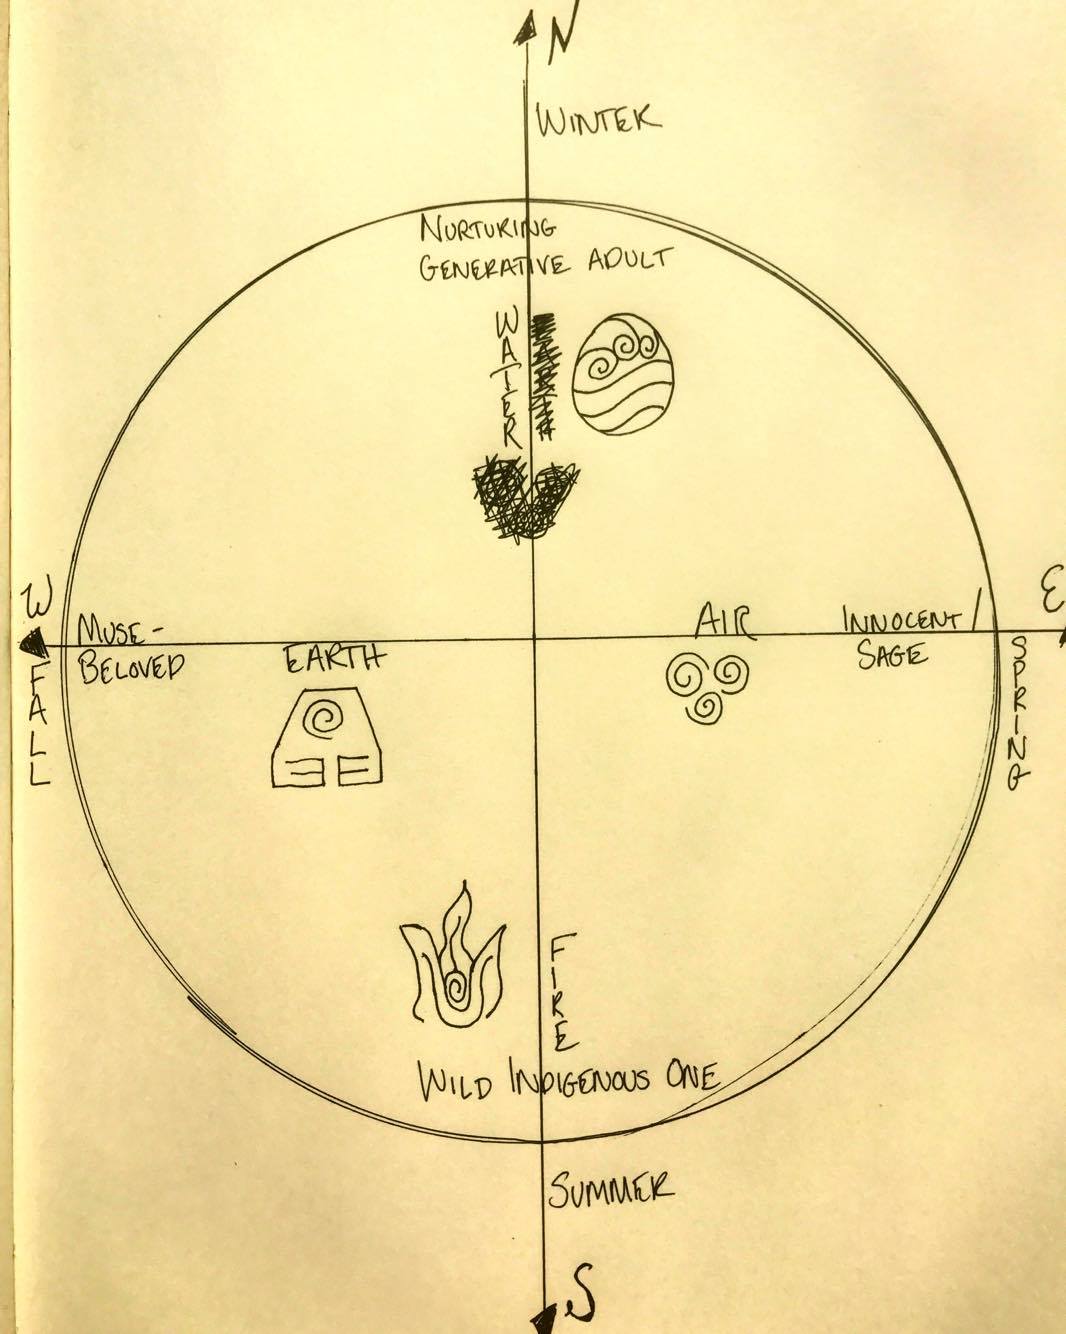 N
WINTER
NURTURING
GENERATIVE ADULT
WATER
W
E
MUSE-
BELOVED
EARTH
AIR
INNOCENT/
SAGE
FALL
SPRING
FIRE
WILD INDIGENOUS ONE
SUMMER
S